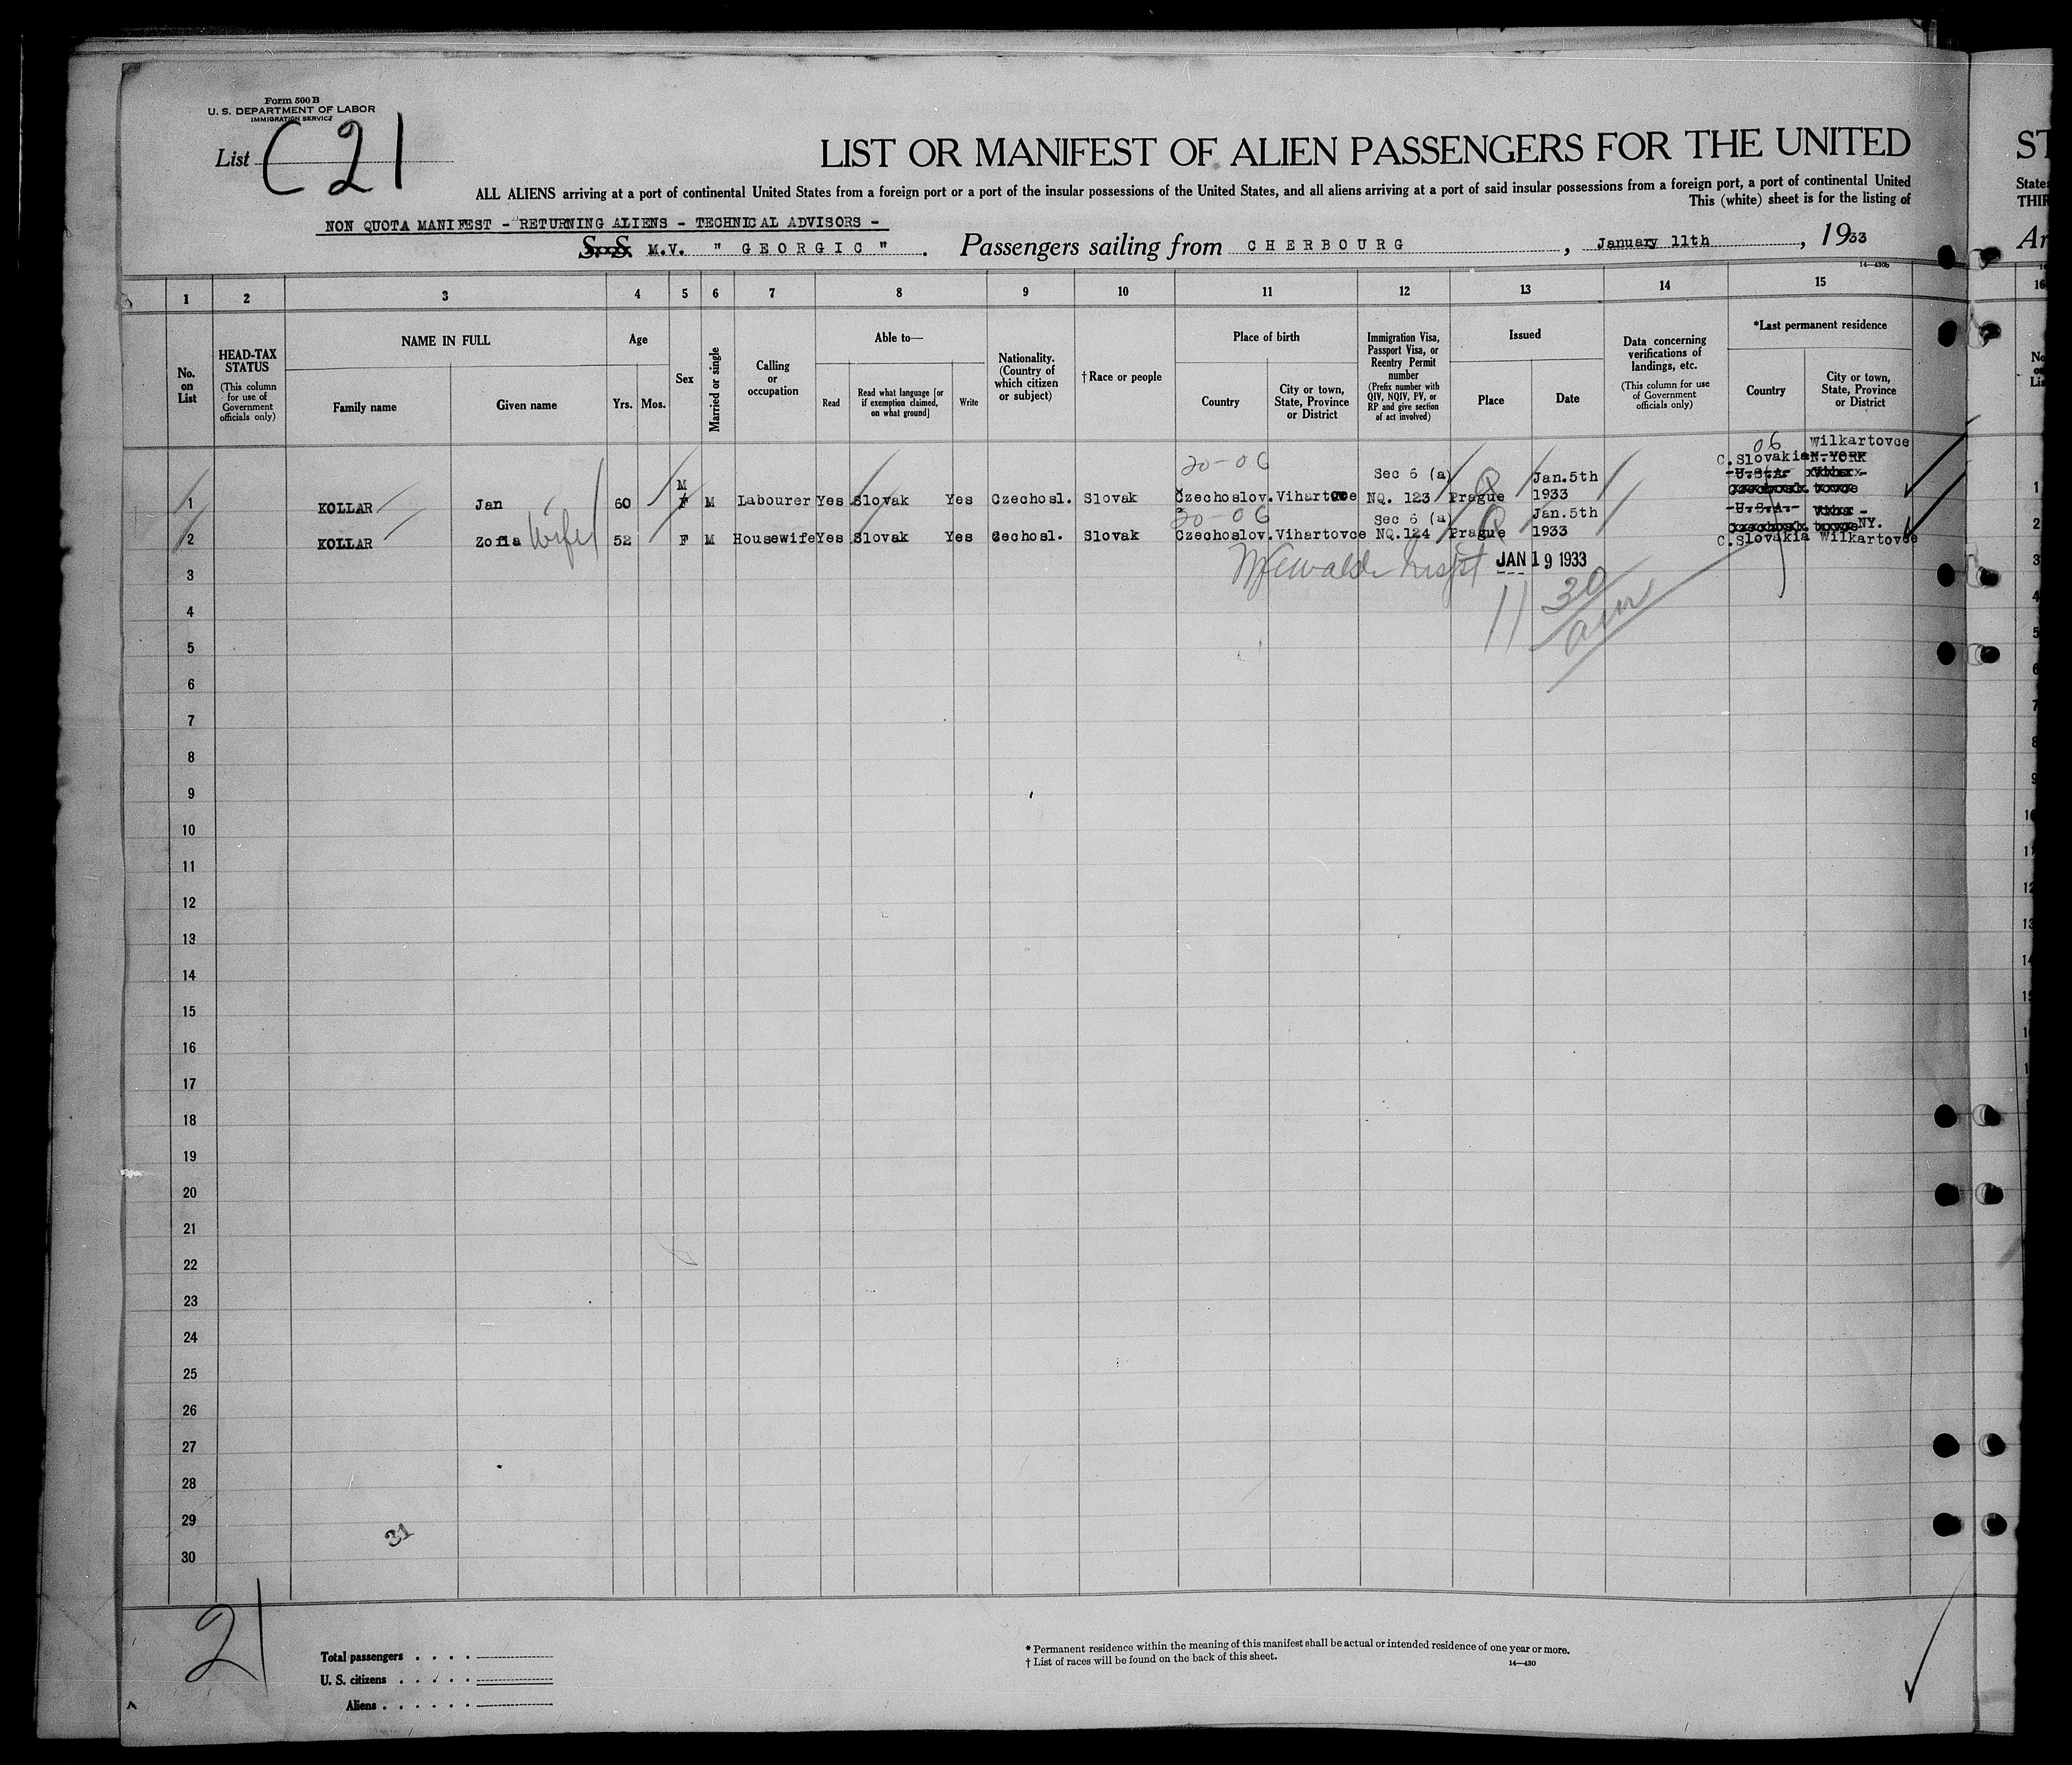 Form 500 B
U. S. DEPARTMENT OF LABOR
IMMIGRATION SERVICE
List C 21
LIST OR MANIFEST OF ALIEN PASSENGERS FOR THE UNITED
ST
ALL ALIENS arriving at a port of continental United States from a foreign port or a port of the insular possessions of the United States, and all aliens arriving at a port of said insular possessions from a foreign port, a port of continental United
States
This (white) sheet is for the listing of
THIR
NON QUOTA MANIFEST - RETURNING ALIENS - TECHNICAL ADVISORS -
S. S. M.V. " GEORGIC ". Passengers sailing from CHERBOURG, January 11th, 1933
Ar
14-430b
1 2 3 4 5 6 7 8 9 10 11 12 13 14 15
16
No. on List
HEAD-TAX STATUS
(This column for use of Government officials only)
NAME IN FULL
Family name
Given name
Age
Yrs. Mos.
Sex
Married or single
Calling or occupation
Able to—
Read
Read what language [or if exemption claimed, on what ground]
Write
Nationality. (Country of which citizen or subject)
† Race or people
Place of birth
Country
City or town, State, Province or District
Immigration Visa, Passport Visa, or Reentry Permit number
(Prefix number with QIV, NQIV, PV, or RP and give section of act involved)
Issued
Place
Date
Data concerning verifications of landings, etc.
(This column for use of Government officials only)
*Last permanent residence
Country
City or town, State, Province or District
06 Wilkartovce
C.Slovakia N.YORK
20-06
Sec 6 (a) Q Jan.5th U.S.A.
M
1 KOLLAR Jan 60 F M Labourer Yes Slovak Yes Czechosl. Slovak Czechoslov. Vihartovce NQ. 123 Prague 1933
20-06
Sec 6 (a) Q Jan.5th U.S.A.
NY.
2 KOLLAR Zofia Wife 52 F M Housewife Yes Slovak Yes Cechosl. Slovak Czechoslov. Vihartovce NQ.124 Prague 1933
C.Slovakia Wilkartovce
3 JAN 19 1933
11 30
am
4
5
6
7
8
9
10
11
12
13
14
15
16
17
18
19
20
21
22
23
24
25
26
27
28
29
31
30
21
Total passengers . . . .
U. S. citizens . . . . .
Aliens . . . . . .
* Permanent residence within the meaning of this manifest shall be actual or intended residence of one year or more.
† List of races will be found on the back of this sheet.
14—430